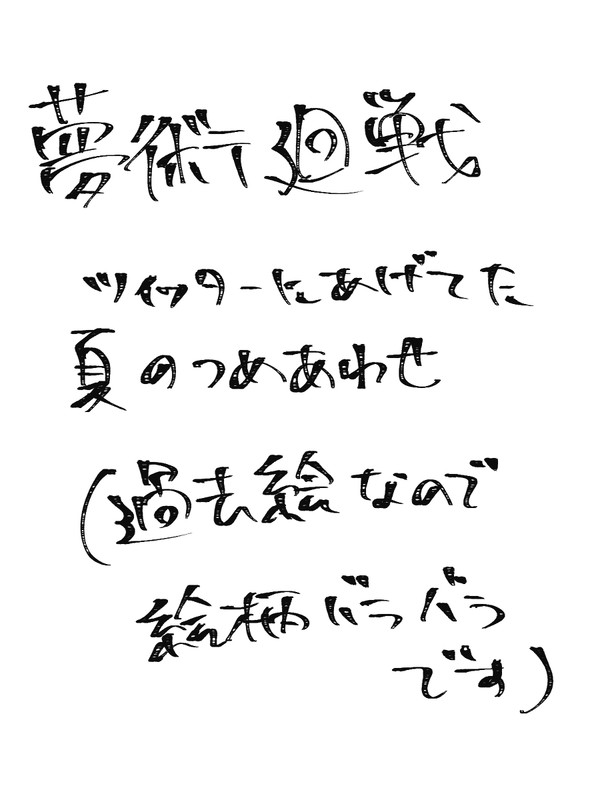 夢術廻戦
ツイッターにあげてた
夏のつめあわせ
(過去絵なので
絵柄バラバラ
です)